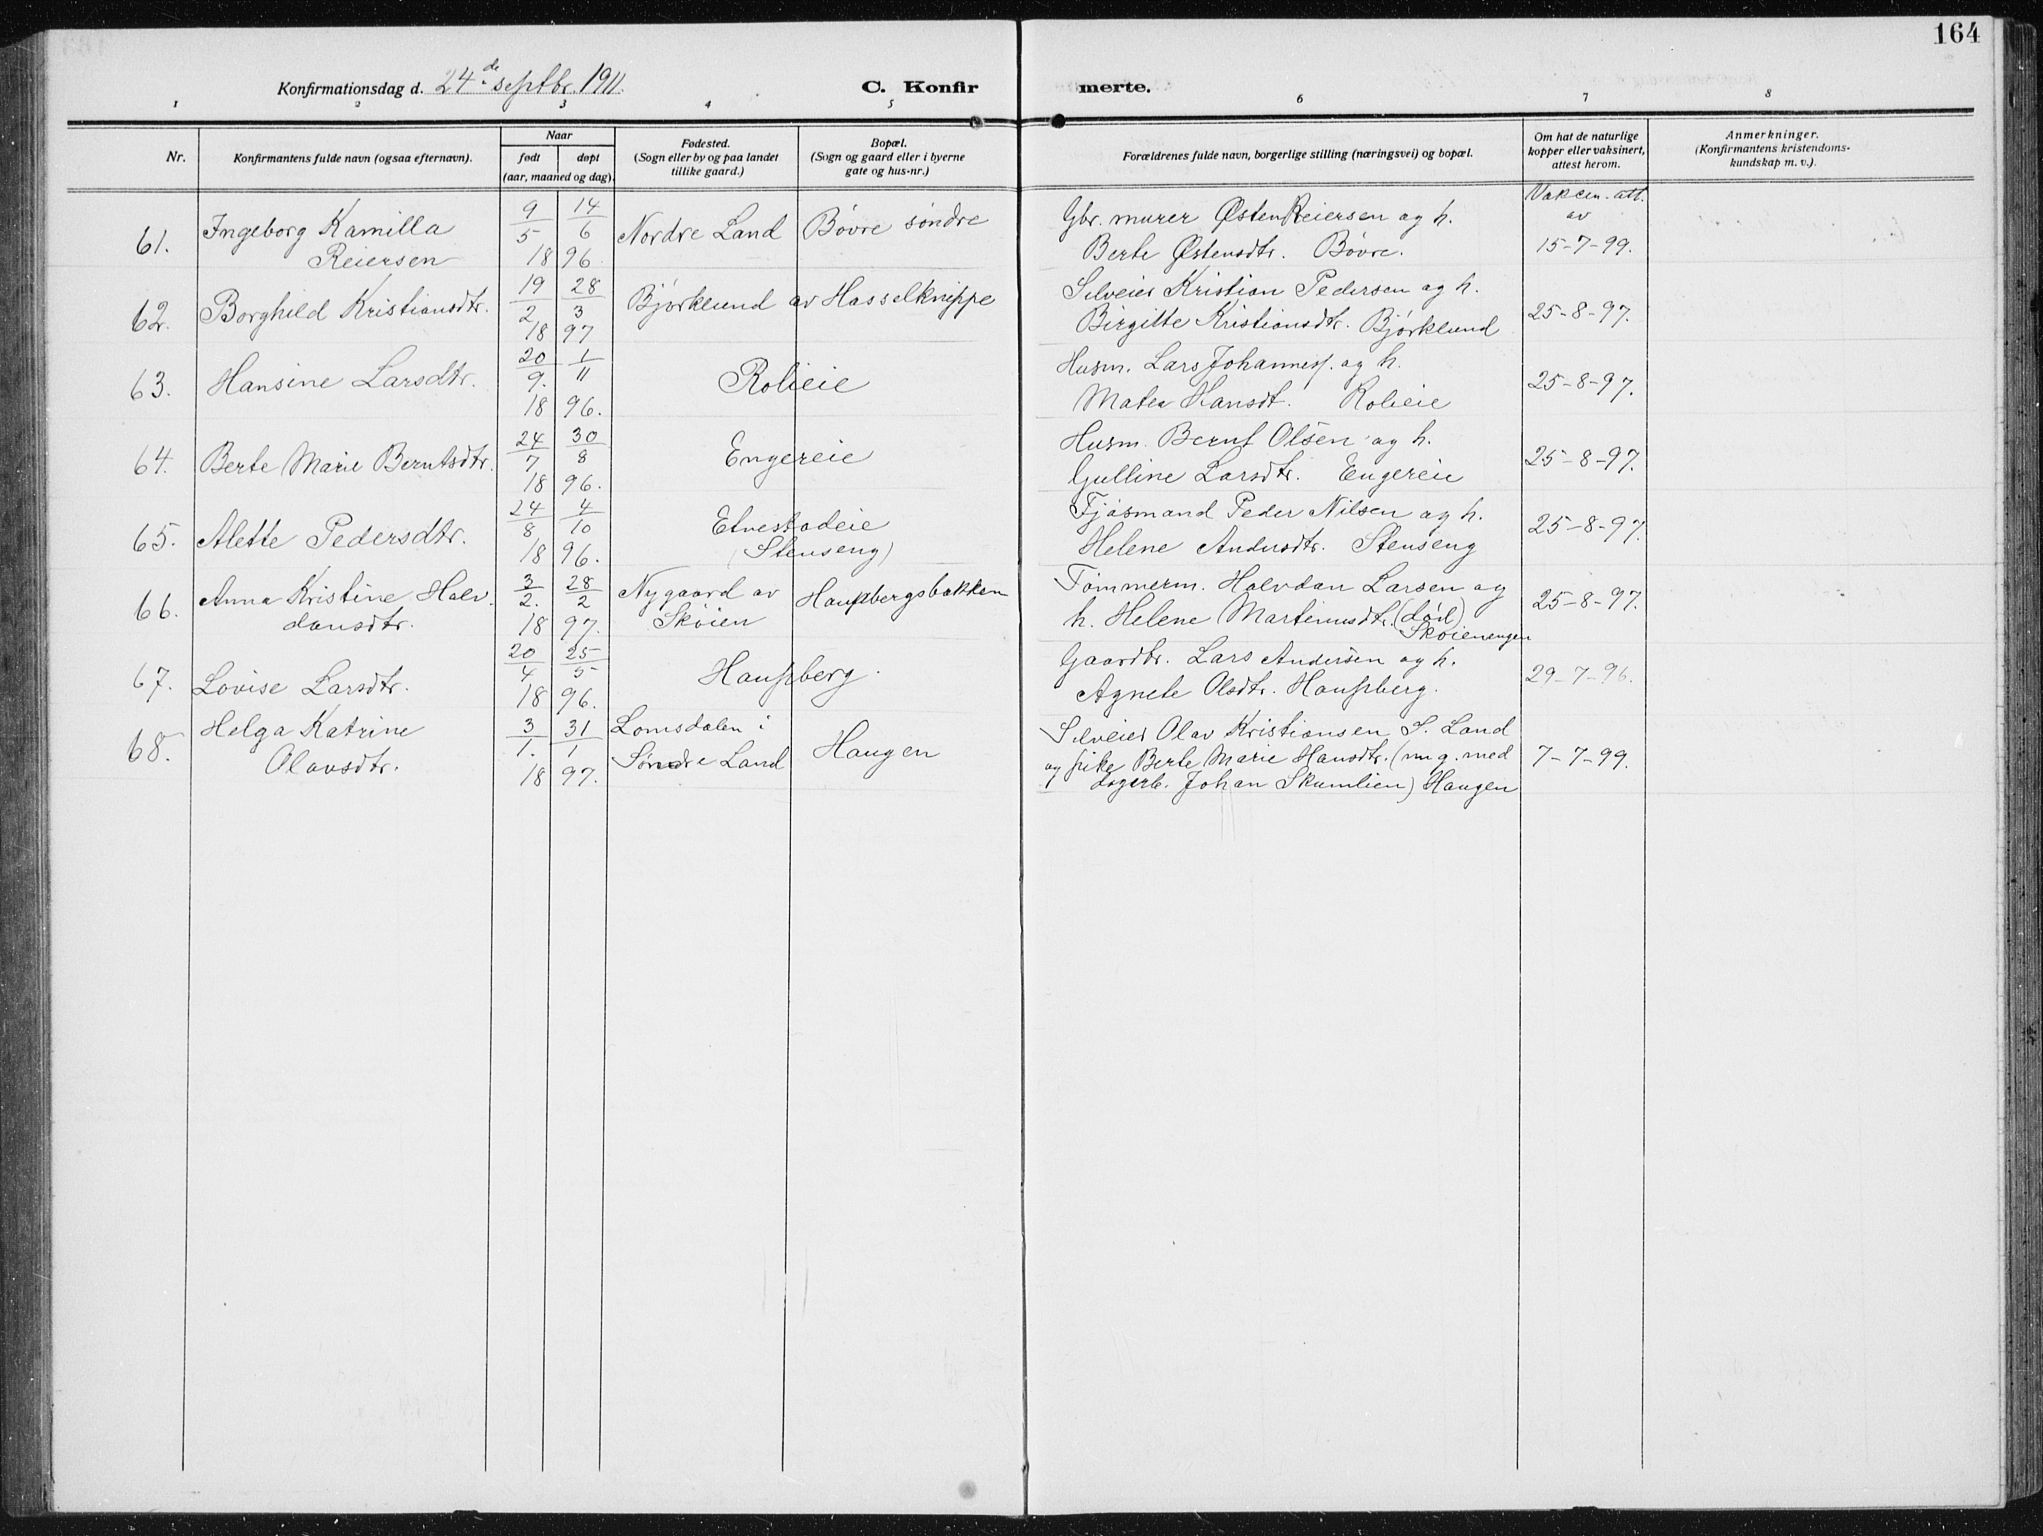 164
Konfirmationsdag d. 24de septbr. 1911.
C. Konfirmerte.
1 2 3 4 5 6 7 8
Nr.
Konfirmantens fulde navn (ogsaa efternavn).
Naar
født døpt
(aar, maaned og dag).
Fødested.
(Sogn eller by og paa landet
tillike gaard.)
Bopæl.
(Sogn og gaard eller i byerne
gate og hus-nr.)
Forældrenes fulde navn, borgerlige stilling (næringsvei) og bopæl.
Om hat de naturlige
kopper eller vaksinert,
attest herom.
Anmerkninger.
(Konfirmantens kristendoms-
kundskap m. v.).
61. Ingeborg Kamilla
Reiersen
9/5 14/6
18 96.
Nordre Land
Bøvre søndre
Gbr. murer Østen Reiersen og h.
Berte Østensdtr. Bøvre.
Vakcin. att.
av
15-7-99.
62. Borghild Kristiansdtr.
19/2 28/3
18 97
Bjørklund av Hasselknippe
Selveier Kristian Pedersen og h.
Birgitte Kristiansdtr. Bjørklund
25-8-97.
63. Hansine Larsdtr.
20/9. 1/11
18 96.
Rolieie
Husm. Lars Johannes. og h.
Matea Hansdt. Rolieie
25-8-97.
64. Berte Marie Berntsdtr.
24/7 30/8
18 96.
Engereie
Husm. Bernt Olsen og h.
Gulline Larsdtr. Engereie
25-8-97.
65. Alette Pedersdtr.
24/8 4/10
18 96.
Etnestadeie
(Stenseng)
Fjøsmand Peder Nilsen og h.
Helene Andersdtr. Stenseng
25-8-97.
66. Anna Kristine Halv.
dansdtr.
3/2. 28/2
18 97.
Nygaard av
Skøien
Haugsbergsbakken
Tømmerm. Halvdan Larsen og
h. Helene Martinusdtr. (død)
Skøienengen
25-8-97.
67. Lovise Larsdtr.
20/4 25/5
18 96.
Haugsberg.
Gaardbr. Lars Andersen og h.
Agnete Olsdtr. Haugsberg.
29-7-96.
68. Helga Katrine
Olavsdtr.
3/1. 31/1
18 97.
Lomsdalen i
Søndre Land
Haugen
Selveier Olav Kristiansen S. Land
og pike Berte Marie Hansdtr. (nu g. med
dagarb. Johan Skumlien) Haugen
7-7-99.